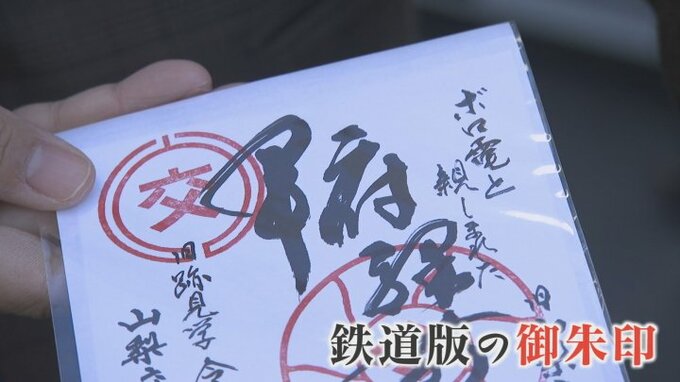 ボロ電と
親しまれた
甲府駅
交
旧跡見学会
山梨交
鉄道版の御朱印